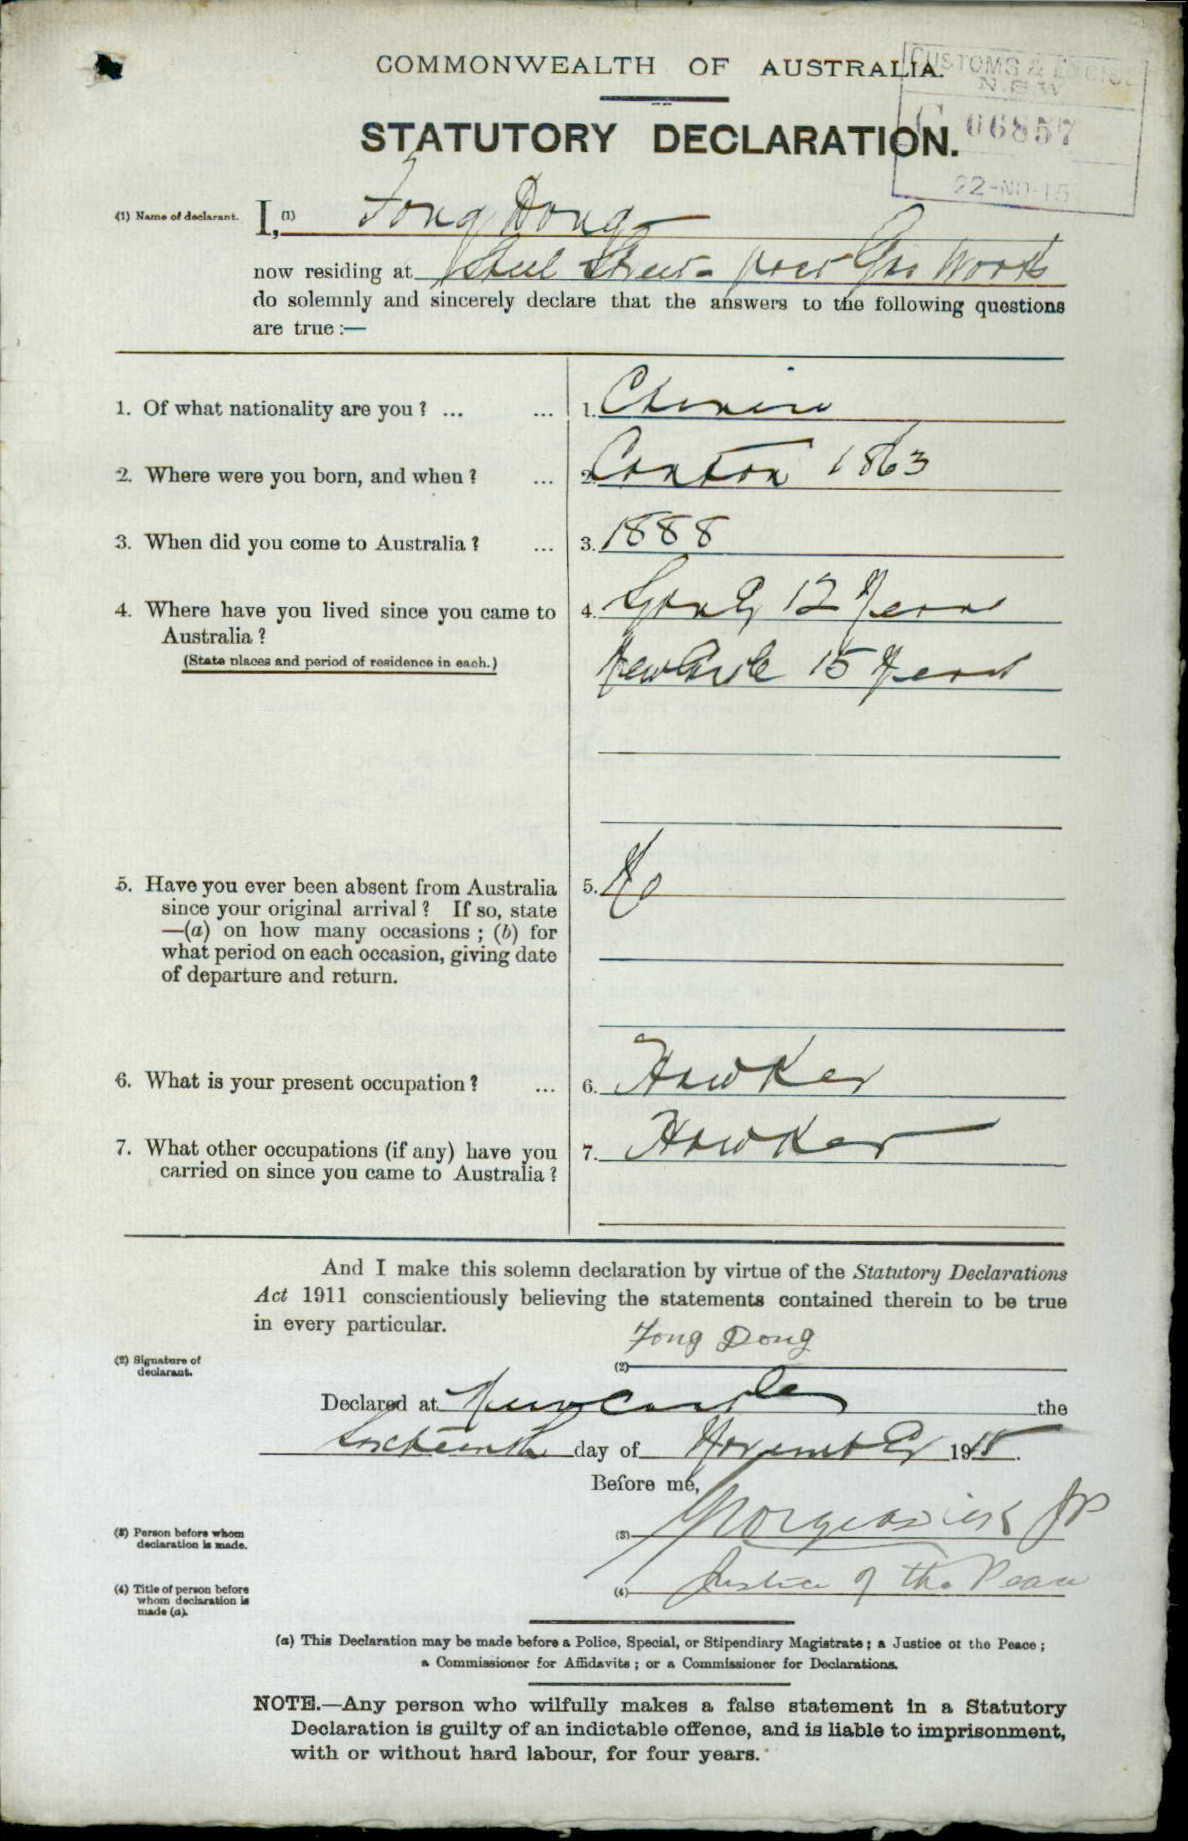 COMMONWEALTH OF AUSTRALIA.
CUSTOMS & EXCISE
N.S.W
C 06857
22-NO-15
STATUTORY DECLARATION.
(1) Name of declarant. I, (1) Fong Dong
now residing at Steel Street - near Gas Works
do solemnly and sincerely declare that the answers to the following questions
are true :—
1. Of what nationality are you ? ... ... 1. Chinese
2. Where were you born, and when ? ... 2. Canton 1863
3. When did you come to Australia ? ... 3. 1888
4. Where have you lived since you came to 4. Sydney 12 Years
Australia ?
(State places and period of residence in each.) Newcastle 15 Years
5. Have you ever been absent from Australia 5. No
since your original arrival ? If so, state
—(a) on how many occasions ; (b) for
what period on each occasion, giving date
of departure and return.
6. What is your present occupation ? ... 6. Hawker
7. What other occupations (if any) have you 7. Hawker
carried on since you came to Australia ?
And I make this solemn declaration by virtue of the Statutory Declarations
Act 1911 conscientiously believing the statements contained therein to be true
in every particular.
Fong Dong
(2) Signature of (2)
declarant.
Declared at Newcastle the
Sixteenth day of November 1915.
Before me,
(3) Person before whom (3) JP
declaration is made.
(4) Title of person before (4) Justice of the Peace
whom declaration is
made (a).
(a) This Declaration may be made before a Police, Special, or Stipendiary Magistrate ; a Justice of the Peace ;
a Commissioner for Affidavits ; or a Commissioner for Declarations.
NOTE.—Any person who wilfully makes a false statement in a Statutory
Declaration is guilty of an indictable offence, and is liable to imprisonment,
with or without hard labour, for four years.